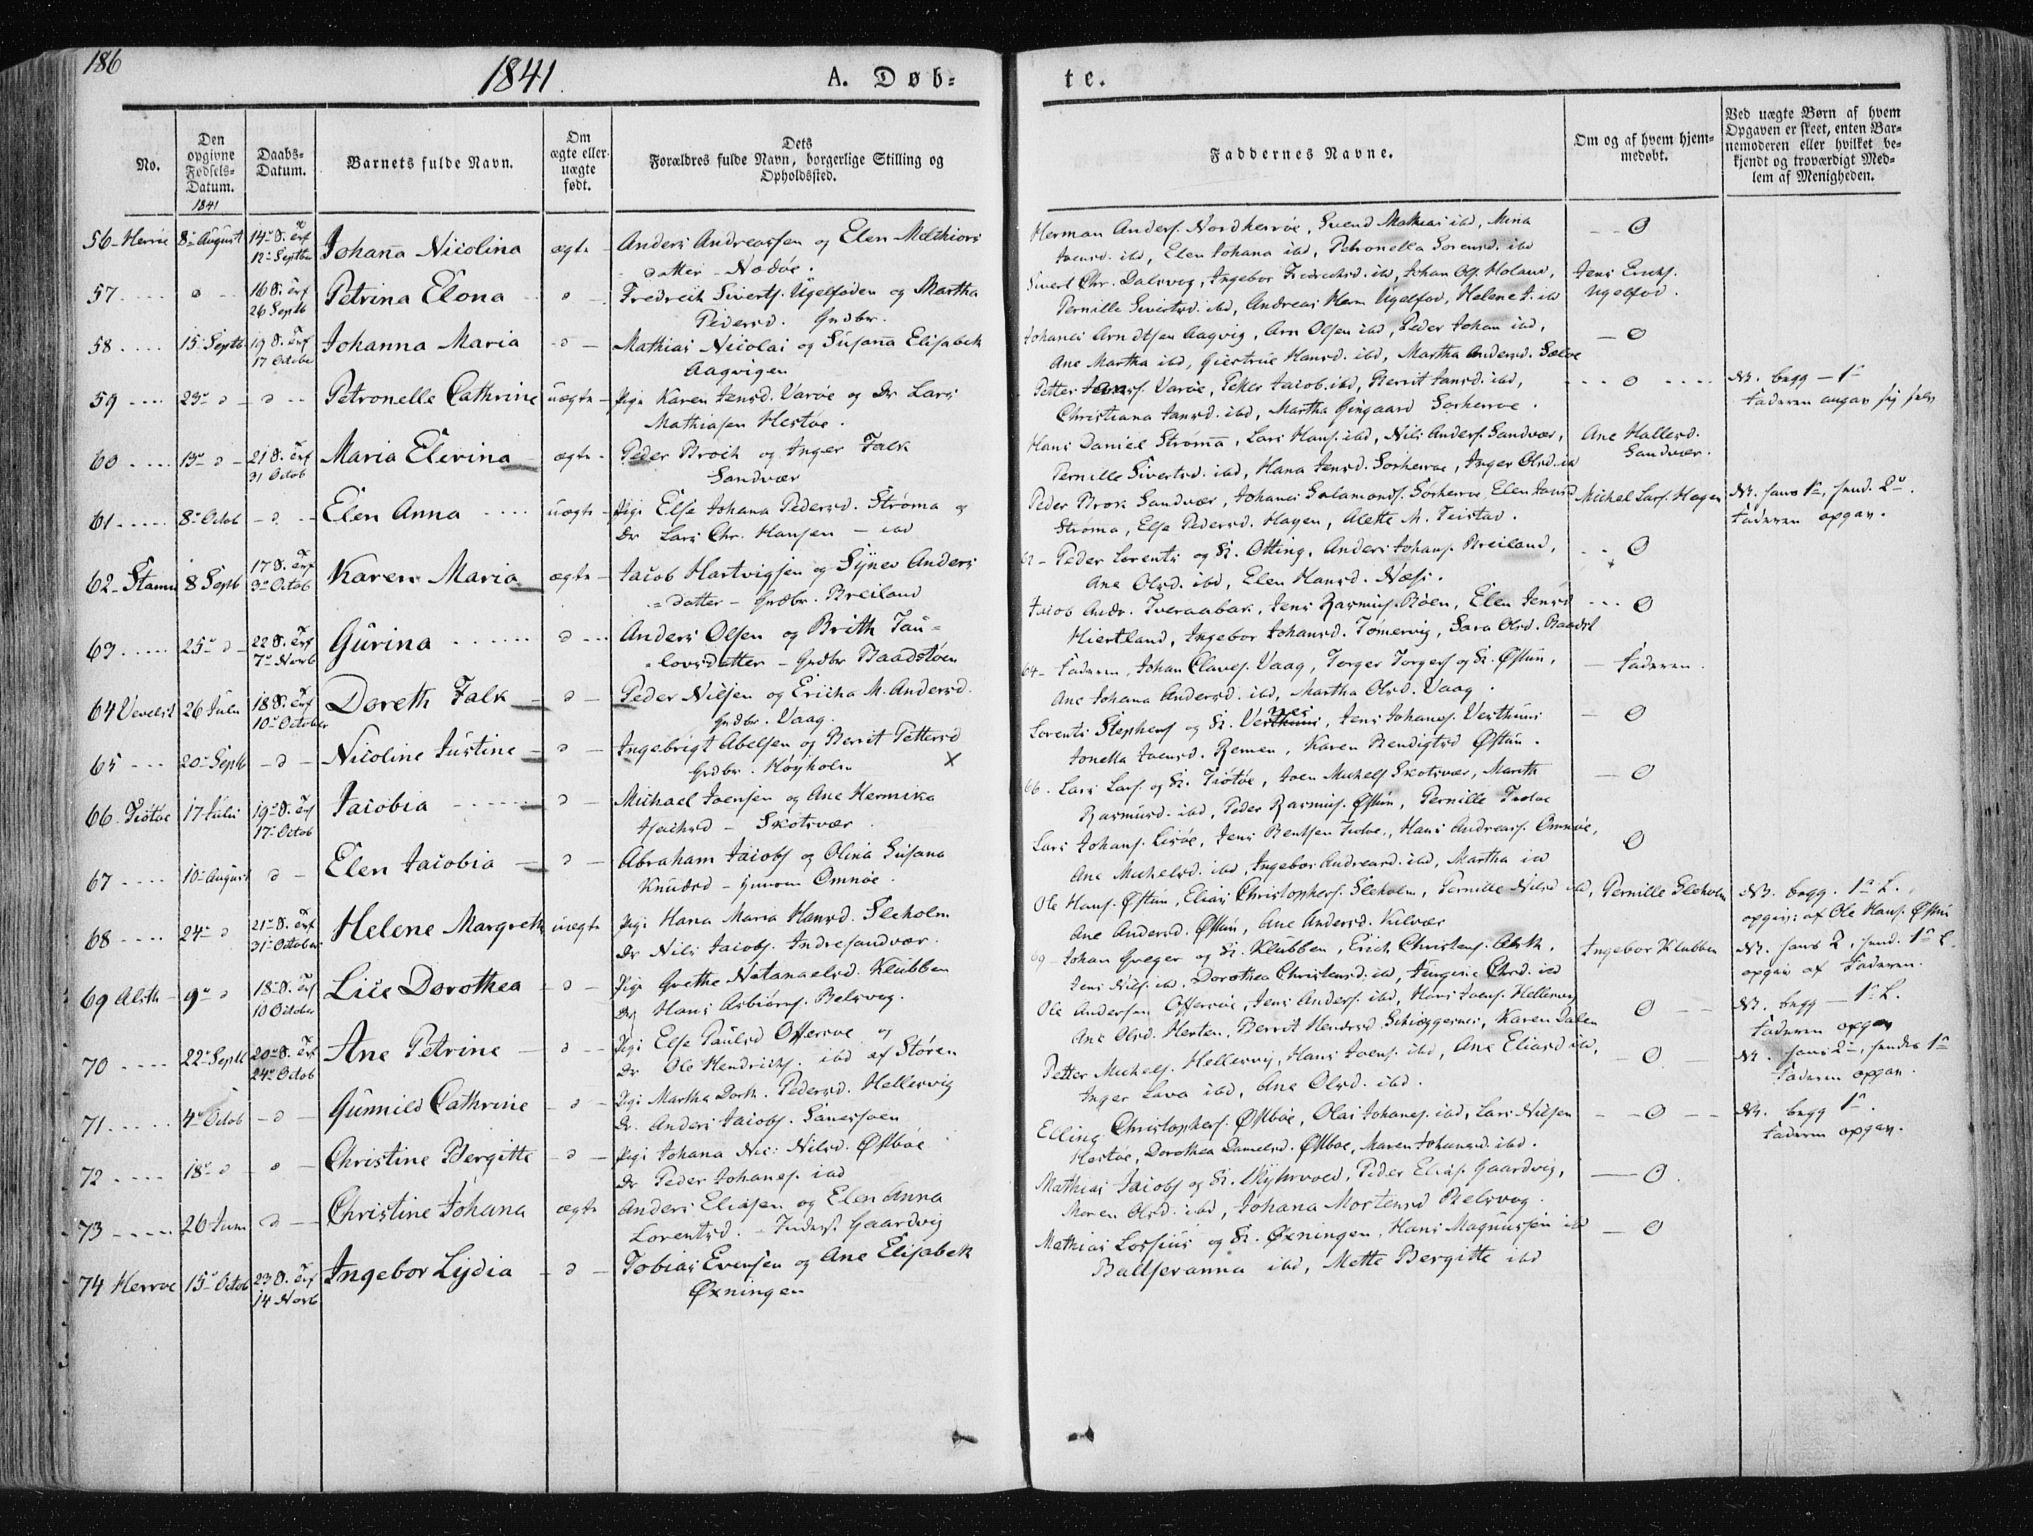 186
1841.
A. Døb-
te.
No.
Den opgivne Fødsels-Datum.
1841
Daabs-Datum.
Barnets fulde Navn.
Om ægte eller uægte født.
Dets Forældres fulde Navn, borgerlige Stilling og Opholdssted.
Faddernes Navne.
Om og af hvem hjem-
medøbt.
Ved uægte Børn af hvem
Opgaven er skeet, enten Bar-
nemoderen eller hvilket be-
kjendt og troværdigt Med-
lem af Menigheden.
56 - Herrøe 8 August 14 S. Trf 12 Septbr Johanna Nicolina ægte Anders Andreassen og Elen Melchiors
datter - Nodøe.
Herman Anders. Nordherrøe, Svend Mathias ibd, Mina
Joensd. ibd, Elen Johana ibd, Petronella Sorensd. ibd
57 16 S. Trf 26 Septb Petrina Elona Fredrich Siverts. Ugelfoden og Martha
Pedersd. Grdbr.
Sivert Chr. Dalsveg, Ingebor Fredrichsd. ibd, Johan Ols. Moland,
Pernille Sivertsd. ibd, Andreas Herm Ugelfod, Helene J. ibd
Jens Erichs. Ugelfod.
58 15 Septb 19 S. Trf 17 October Johanna Maria Mathias Nicolai og Susanna Elisabeth
Aagvigen
Johanes Arndtsen Aagvig, Arn Olsen ibd, Peder Johan ibd,
Ane Martha ibd, Giertrue Hansd. ibd, Martha Andersd.
59 23 Petronelle Cathrine uægte Pige Karen Jensd. Varøe og Dr Lars
Mathiasen Hestøe.
Petter Varøe, Peter Jacob. ibd, Berrit Jansd. ibd,
Christiana Jansd. ibd, Martha Gingaard Sorherroe.
NB. begg - 1
Faderen angav sig selv
60 13 21 S. Trf 31 Octob Maria Elevina ægte Peder Broch og Inger Falk
Sandvær
Hans Daniel Strøma, Lars Hans. ibd, Nils Anders. Sandvær,
Pernille Sivertsd. ibd, Hana Jensd. Sorherroe, Inger Olsd. ibd
Ane Hallesd. Sandvær.
61 8 Octob Elen Anna uægte Pige Else Johana Pedersd. Strøma og
Dr Lars Chr. Hansen - ibd
Peder Brok Sandvær, Johanes Salamons. Sorherroe, Elen Jansd
Strøma, Else Pedersd. Hagen, Alette M. Teistad.
Michel Lars. Hagen
NB. hans 1, hend. 2.
Faderen opgav.
62 - Stamn 8 Septb 17 S. Trf 3 Octob Karen Maria ægte Jacob Hartvigsen og Synev Anders
datter - Grdbr. Breiland
62 - Peder Lorents og K. Otting, Anders Johans. Breiland,
Ane Olsd. ibd, Elen Hansd. Næss.
63 25 22 S. Trf 7 Novb Gurina Anders Olsen og Brith Tau-
lovsdatter - Grdbr Baadstøen
Jacob Andr. Tveraabak, Jens Rasmus. Bøen, Elen Jensd
Hiertland, Ingebor Johansd. Tømervig, Sara Olsd.
64 Vevelst 26 Juli 18 S. Trf 10 October Doreth Falk Peder Nilsen og Ericha M. Andersd.
Grdbr. Vaag
64 - Faderen, Johan Claves. Vaag, Torger Torgers og K. Østun,
Ane Johana Andersd. ibd, Martha Olsd. Vaag.
Faderen.
65 20 Septb Nicoline Justine Ingebrigt Abelsen og Berrit Pettersd
Grdbr. Høyholm
Lorents Stephens og K. Jens Johanes. Vesthuns
Jonetta Joensd. Remen, Karen Bendigtsd Østun.
66 Tiøtøe 17 Juli 19 S. Trf 17 Octob Jacobia Michael Joensen og Ane Hermika
Skotsvær
66. Lars Lars. og K. Tiøtøe, Joen Michels Skotsvær, Marith
Rasmusd. ibd, Peder Rasmus. Østun, Pernille Tiotøe
67 10 August Elen Jacobia Abraham Jacobs og Olina Susana
Knudsd - Omnøe.
Lars Johans. Jens Bentsen Hans Andreas. Omnøe,
Ane Michelsd. ibd, Ingebor Andreasd. ibd, Martha ibd
68 24 21 S. Trf 31 October Helene Margreth uægte Pige Hana Maria Hansd. Sleholm
Dr Nils Jacobs. Indresandvær.
Ole Hans. Østun, Elias Christophers. Sleholm, Pernille Nilsd ibd,
Ane Andersd. Østun, Ane Andersd. Kilvær
Pernille Sleholm
NB. begg. 1 L.
opgiv: af Ole Hans. Østun
69 Alsth 9 18 S. Trf 10 October Lice Dorothea Pige Grethe Natanaelsd. Klubben
Dr Hans Asbiørns. Belsveg.
69 - Johan Greger og K. Klubben, Erich Christens.
Jens Nils. ibd, Dorothea Christensd. ibd, Chrsd. ibd
Ingebor Klubben
NB. hans 2, hend. 1 L.
opgiv af Faderen.
70 22 Septb 20 S. Trf 24 Octob Ane Petrine Pige Else Paulsd Offersøe og
Dr Ole Hendrichs. ibd af Støren
Ole Andersen Offersøe, Jens Anders. ibd, Hans Joens. Hellesvig
Ane Olsd. Hesten, Berrit Hendrsd. Karen Dalen
NB. begg - 1 L.
Faderen opgav
71 4 Octob Gunnild Cathrine Pige Martha Dorth. Pedersd. Hellesvig
Dr. Anders Jacobs.
Petter Michels. Hellesvig, Hans Joens. ibd, Ane Eliasd ibd,
Inger Lava ibd, Ane Olsd. ibd.
NB. hans 2, hendes 1
Faderen opgav.
72 18 Christine Bergitte Pige Johana Nic: Nilsd. Østbøe
Dr Peder Johanes. ibd
Elling Christophers. Østbøe, Olai Johanes. ibd, Lars Nilsen
Hestøe, Dorothea Danielsd. Østbøe, Maren Johansd. ibd.
NB. begg 1.
Faderen opgav.
73 26 Juni Christine Johana ægte Anders Eliasen og Elen Anna
Lorentsd. - Gaardvig
Mathias Jacobs og K. Peder Elias. Gaardvig,
Maren Olsd. ibd, Johana Mortensd Belsvog.
74 Herroe 15 Octob 23 S. Trf 14 Novb Ingebor Lydia Tobias Evensen og Ane Elisabeth
Øxningen
Mathias Lossius og K. Øxningen, Hans Magnussen ibd
Baltseranna ibd, Mette Bergitte ibd